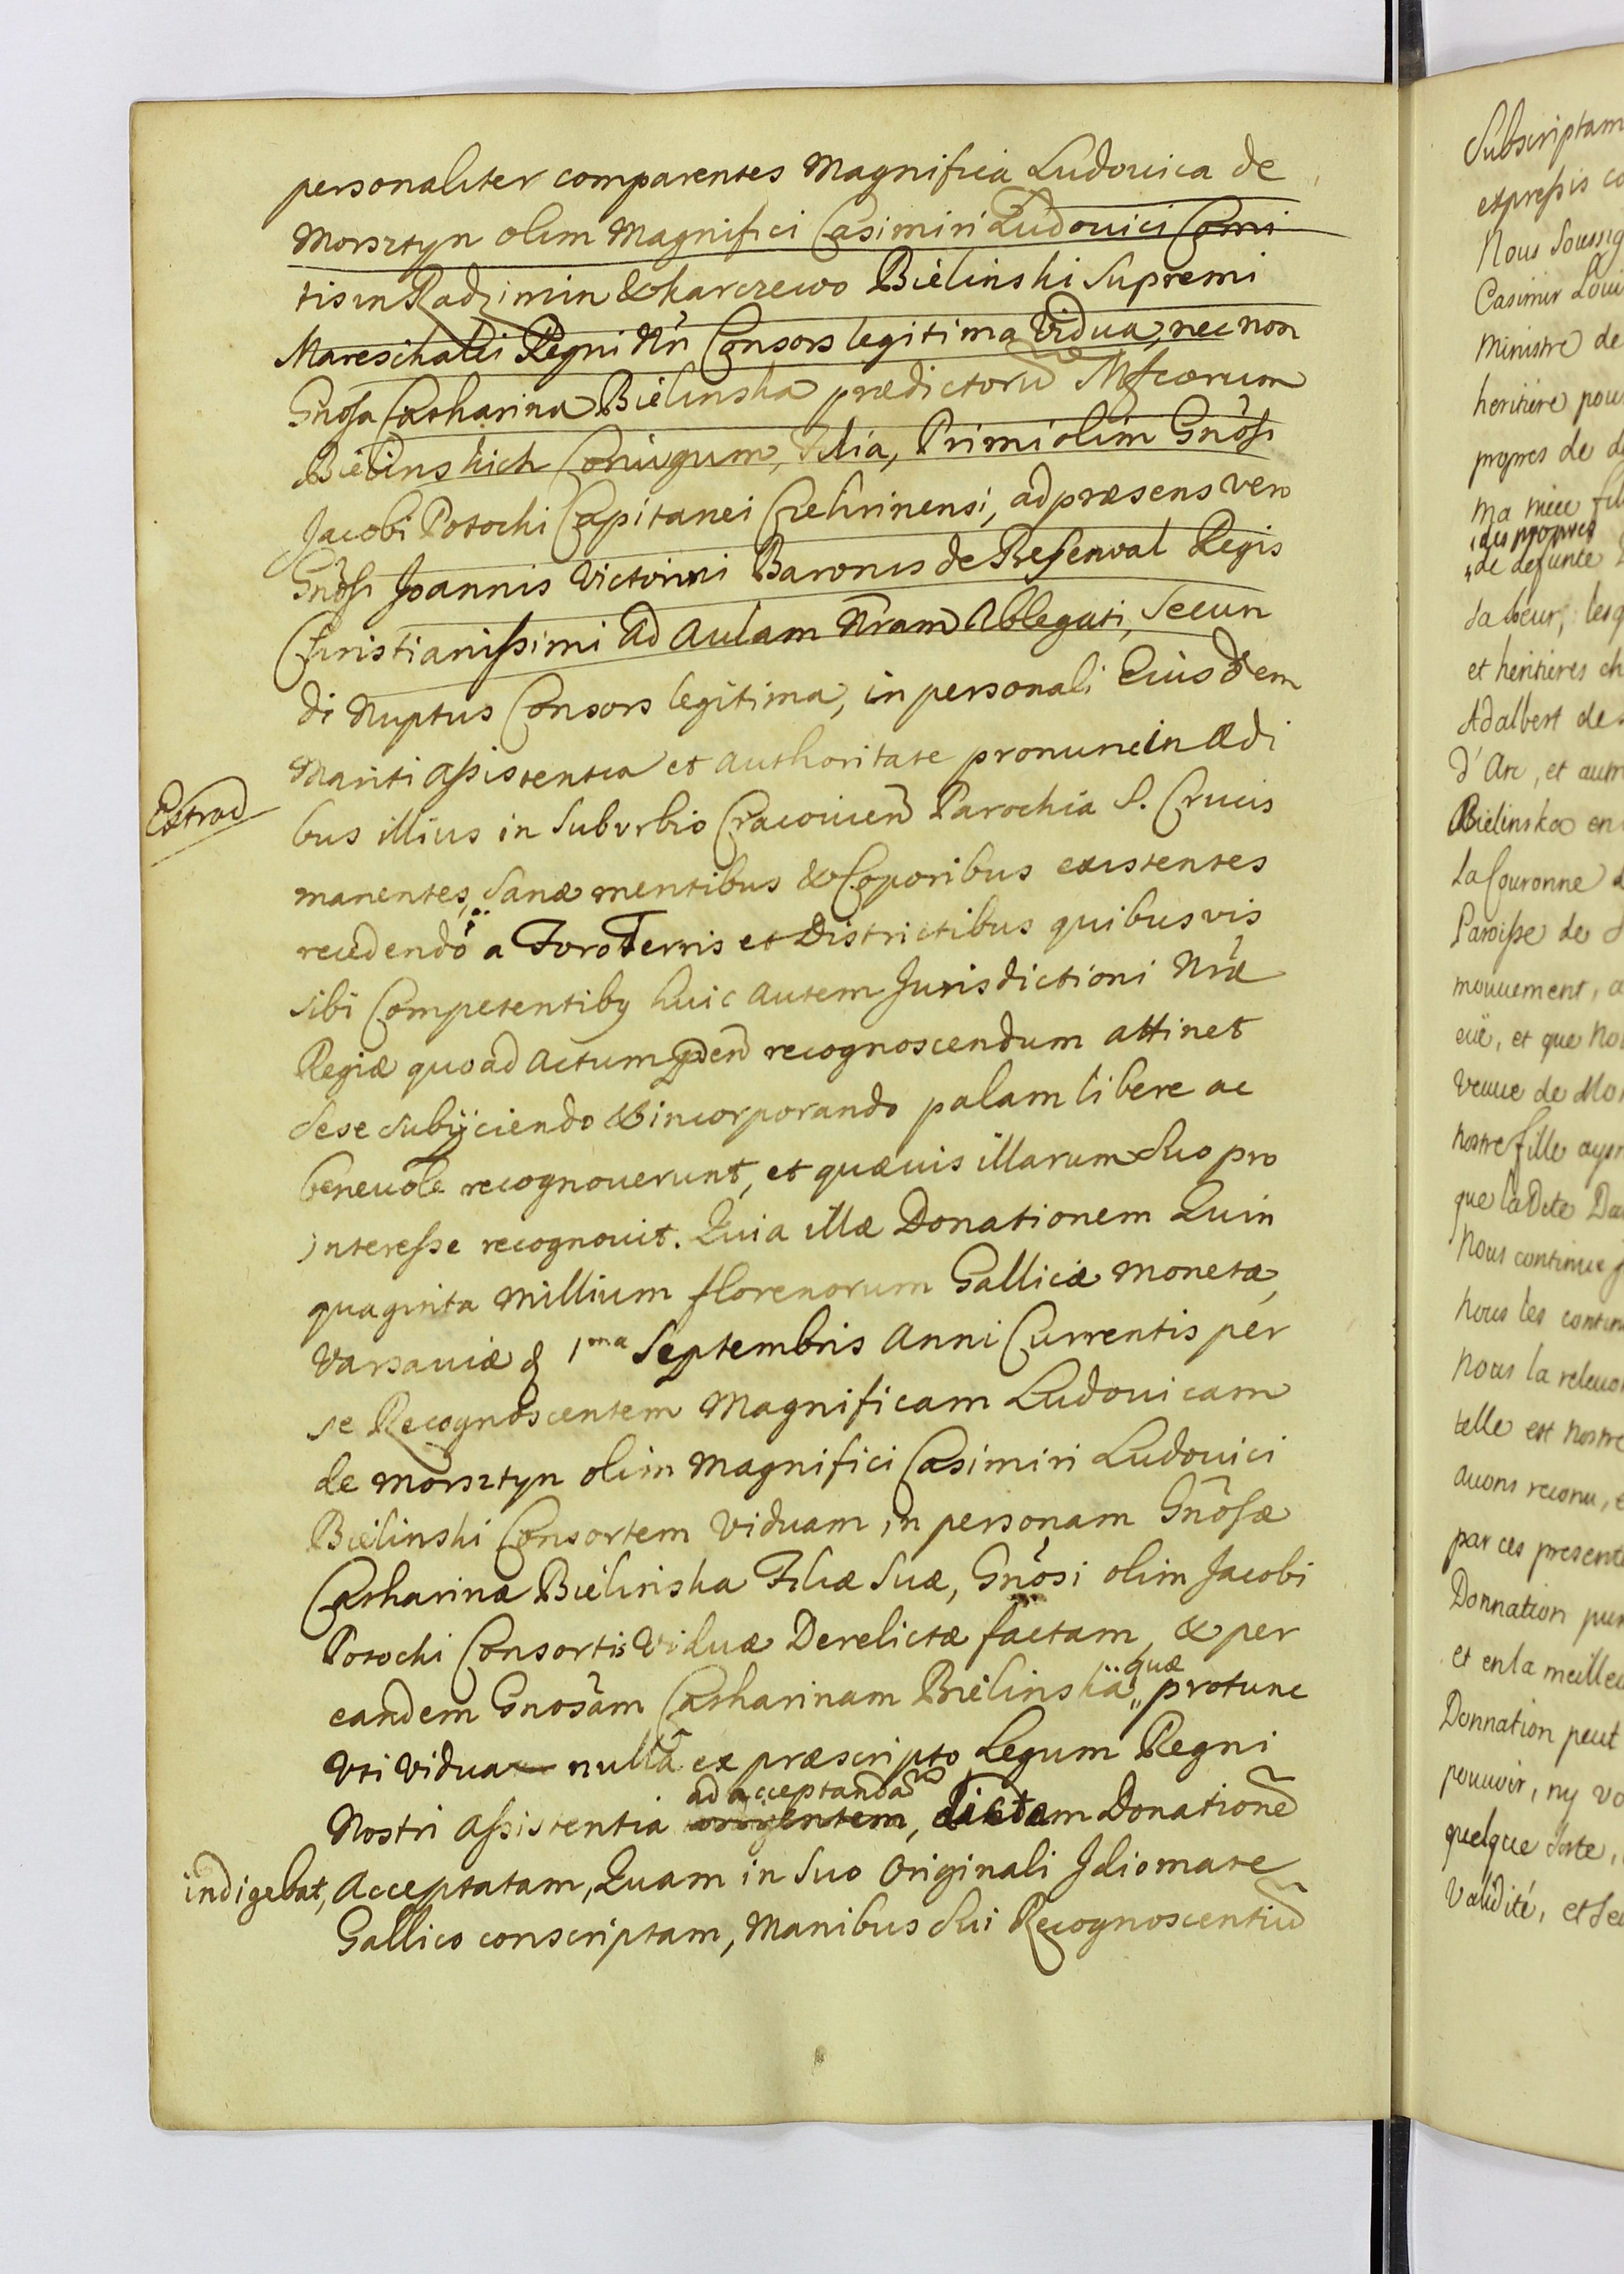 personaliter comparentes Magnifica Ludouica de
Morsztyn olim Magnifici Casimiri Ludouici Comi
tis in Radzimin & Karczewo Bielinski Supremi
Mareschalci Regni Nri Consors legitima Vidua, nec non
Gnosa Catharina Bielinska prædictorũ Mfcorum
Bielinskich Coniugum, Filia, Primi olim Gnosi
Jacobi Potocki Capitanei Czehrinensi, ad præsens vero
Gnosi Joannis Victorini Baronis de Besenval Regis
Christianissimi ad Aulam Nram Ablegati, Secun
di Nuptus Consors legitima, in personali Eiusdem
Mariti assistentia et authoritate pronunc in Ædi
Extrad
bus illius in Suburbio Cracouien Parochia S. Crucis
manentes, Sanæ mentibus & Coporibus existentes
recedendo a Foro Terris et Districtibus quibusvis
sibi Competentibq huic autem Jurisdictioni Nræ
Regiæ quoad Actum pñtem recognoscendum attinet
sese subÿciendo & incorporando palam libere ac
beneuole recognouerunt, et quæuis illarum suo pro
interesse recognouit. Quia illæ Donationem Quin
quaginta Millium florenorum Gallicæ Monetæ,
Varsauiæ d 1ma Septembris Anni Currentis per
se Recognoscentem Magnificam Ludouicam
de Morsztyn olim Magnifici Casimiri Ludouici
Bielinski Consortem Viduam in personam Gnosæ
Catharinæ Bielinska Filiæ Suæ, Gnosi olim Jacobi
Potocki Consortis Viduæ Derelictæ factam, & per
eandem Gnosam Catharinam Bielinskã quæ protunc
Vti Vidua nullã ex præscripto Legum Regni
Nostri Assistentia ad acceptandã dictam Donationẽ
indigebat, Acceptatam, Quam in Suo Originali Idiomate
Gallico conscriptam, Manibus Sui Recognoscentiũ
Subscriptam
expressis co
Nous Soussig
Casimir Loui
Ministre de
heritiere pour
propres de d
ma niece fil
des propres
de defunte
Sa Soeur, lesq
et heritieres ch
Adalbert de
d'Arc, et autr
Bielinska en
La Couronne d
Paroisse de S
mouuement, a
euë, et que No
Veuue de Mon
nostre fille ayan
que la Dite Da
Nous continue
nous les contin
Nous la releuo
telle est nostre
auons reconu, e
par ces presente
Donnation pur
et en la meilleu
Donnation peut
pouuoir, ny vo
quelque Sorte,
Validité, et Se